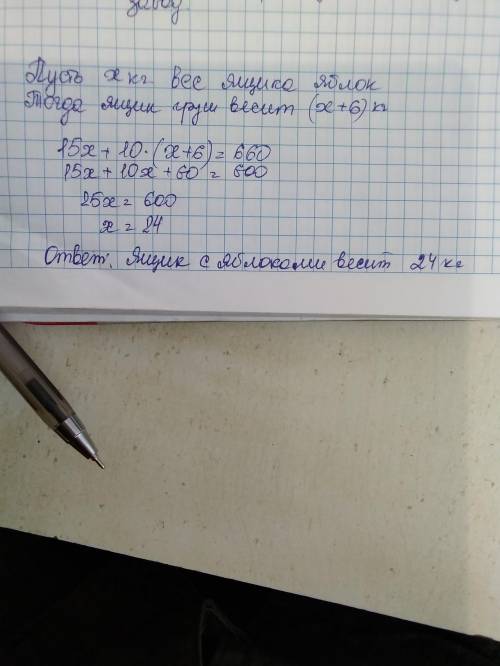 Пусть x кг вес ящика яблок
Тогда ящик груш весит (x+6) кг
15x + 10·(x+6) = 660
15x + 10x + 60 = 600
25x = 600
x = 24
Ответ. Ящик с яблоками весит 24 кг